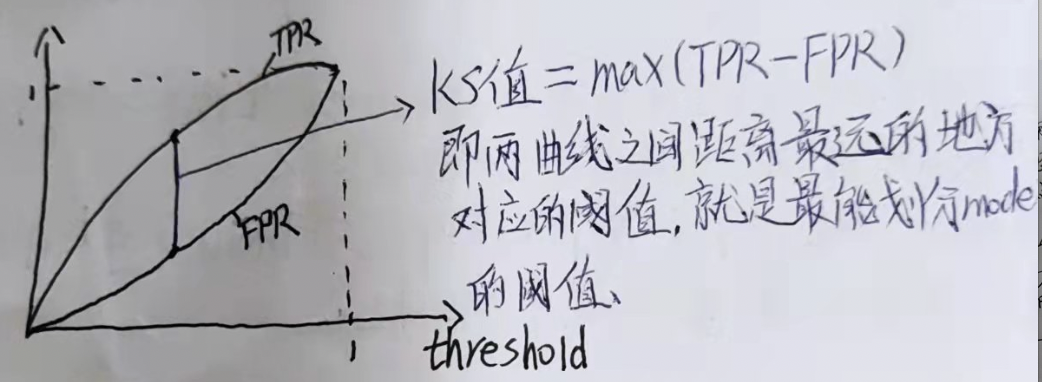 TPR
1
KS值=max(TPR-FPR)
即两曲线之间距离最远的地方
FPR
对应的阈值,就是最能划分mode
的阈值、
1
threshold